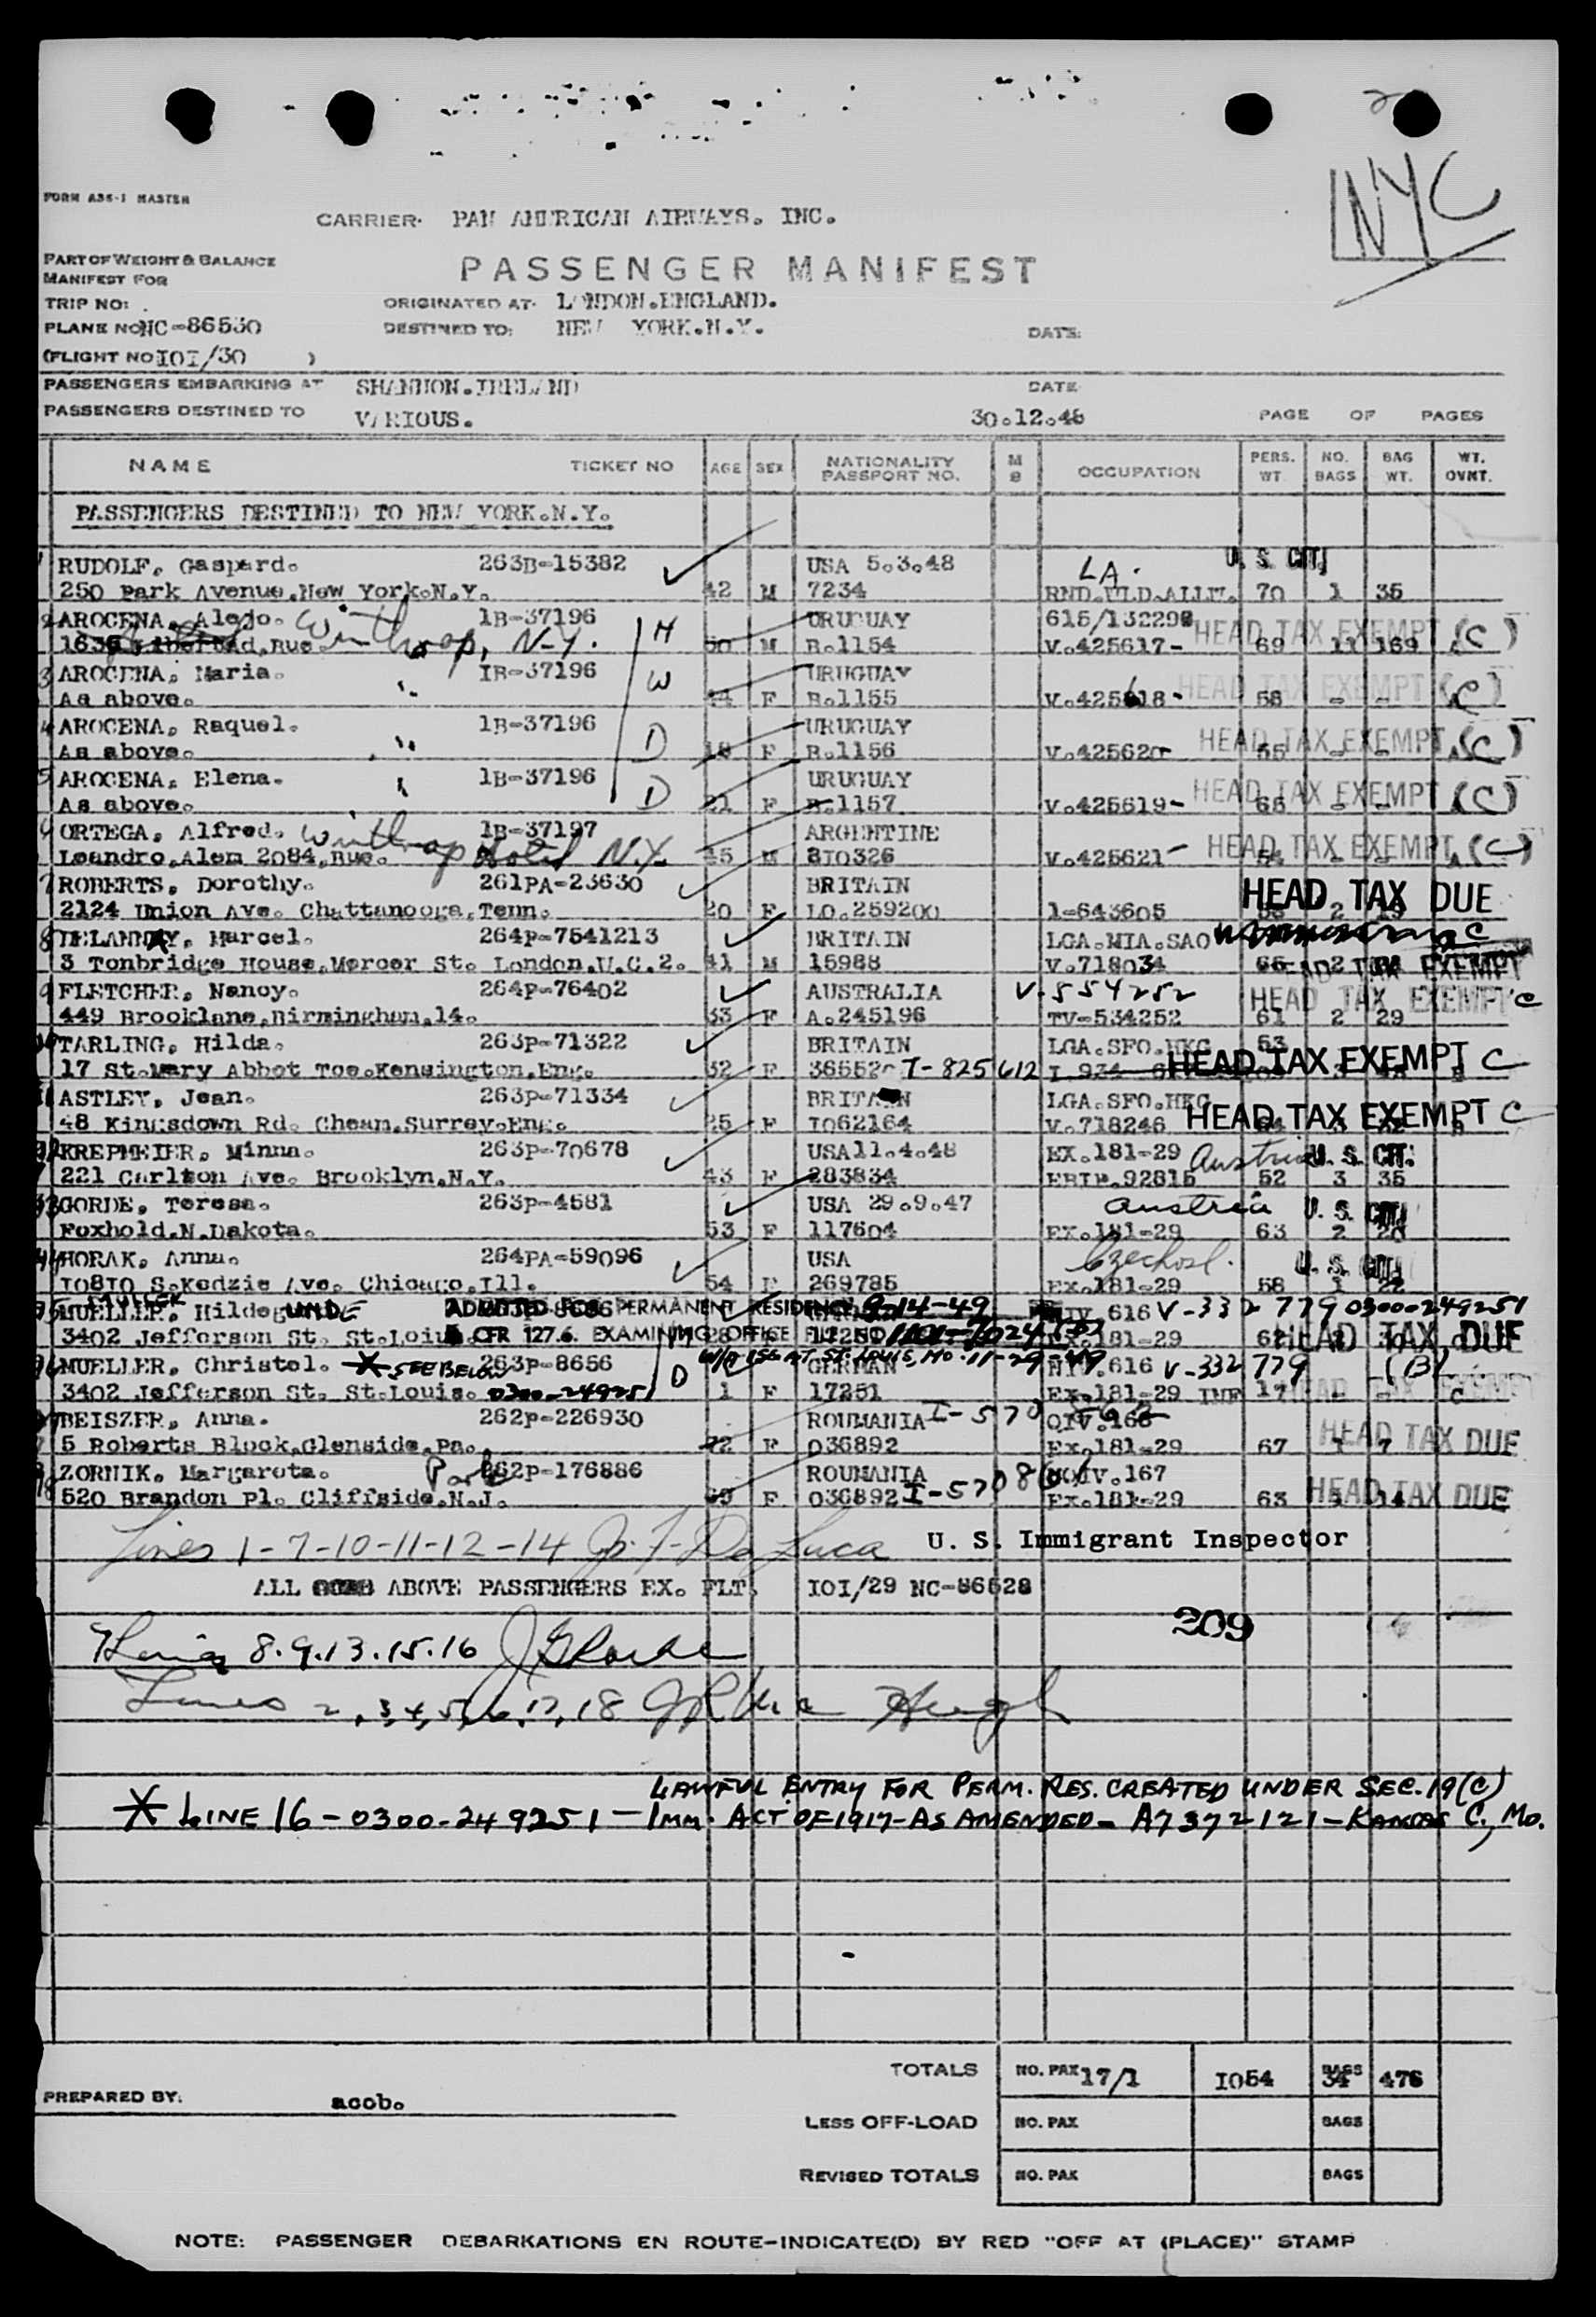 NYC
FORM ASS-1 MASTER
CARRIER- PAN AMERICAN AIRWAYS. INC.
PART OF WEIGHT & BALANCE
MANIFEST FOR
PASSENGER MANIFEST
TRIP NO:
ORIGINATED AT- LONDON.ENGLAND.
PLANE NO NC-86530
DESTINED TO: NEW YORK.N.Y.
DATE:
(FLIGHT NO IOI/30 )
PASSENGERS EMBARKING AT SHANNON.IRELAND DATE
PASSENGERS DESTINED TO VARIOUS. 30.12.48 PAGE OF PAGES
NAME TICKET NO AGE SEX NATIONALITY PASSPORT NO. M B OCCUPATION PERS. WT NO. BAGS BAG WT. WT. OVNT.
PASSENGERS DESTINED TO NEW YORK.N.Y.
1 RUDOLF, Gaspard. 263B-15382 USA 5.3.48 LA. U. S. CIT.
250 Park Avenue.New York.N.Y. 42 M 7234 70 1 35
2 AROCENA, Alejo. Winthrop, N-Y. 1B-37196 H URUGUAY HEAD TAX EXEMPT (C)
50 M B.1154 V.425617- 69 11 169
3 AROCENA, Maria. " IB-37196 W URUGUAY HEAD TAX EXEMPT (C)
As above. 44 F B.1155 V.425618- 58 - -
4 AROCENA, Raquel. " 1B-37196 D URUGUAY HEAD TAX EXEMPT (C)
As above. 18 F B.1156 V.425620- 55 - -
5 AROCENA, Elena. " 1B-37196 D URUGUAY HEAD TAX EXEMPT (C)
As above. 21 F B.1157 V.425619- 65 - -
6 ORTEGA, Alfred. Winthrop Hotel N.Y. 1B-37197 ARGENTINE HEAD TAX EXEMPT (C)
Leandro.Alem 2084.Bue. 45 M 810326 V.425621-
7 ROBERTS, Dorothy. 261PA-23630 BRITAIN HEAD TAX DUE
2124 Union Ave. Chattanooga.Tenn. 20 F 1-643605
8 DELANNAY, Marcel. 264P-7541213 BRITAIN LGA.MIA.SAO C
3 Tonbridge House.Mercer St. London.W.C.2. 41 M 15988 V.718034 HEAD TAX EXEMPT
9 FLETCHER, Nancy. 264P-76402 AUSTRALIA V-554252 HEAD TAX EXEMPT C
449 Brooklane.Birmingham.14. 33 F A.245196 TV-534252 61 2 29
10 TARLING, Hilda. 263P-71322 BRITAIN LGA.SFO.HKG 53
17 St.Mary Abbot Tce.Kensington.Eng. 32 F I-825612 HEAD TAX EXEMPT C
11 ASTLEY, Jean. 263P-71334 BRITAIN LGA.SFO.HKG
48 Kingsdown Rd. Cheam.Surrey.Eng. 25 F IO62164 V.718246 HEAD TAX EXEMPT C
12 KREPMEIER, Minna. 263P-70678 USA 11.4.48 EX.181-29 Austria U. S. CIT.
221 Carlton Ave. Brooklyn.N.Y. 43 F 283834 92815 52 3 35
13 GORDE, Teresa. 263P-4581 USA 29.9.47 Austria U. S. CIT.
Foxhold.N.Dakota. 53 F 117604 EX.181-29 63 2 20
14 HORAK, Anna. 264PA-59096 USA Czechosl. U. S. CIT.
IO8IO S.Kedzie Ave. Chicago.Ill. 54 F 269785 Ex.181-29 58 1 22
15 MUELLER, Hildegunde MULLER ADMITTED FOR PERMANENT RESIDENCE 9-14-49 616 V-332 779 0300-249251
3402 Jefferson St. St.Loius 8 CFR 127.6. EXAMINING OFFICE FILE NO 28 181-29 HEAD TAX DUE
W/A ISS AT ST. LOUIS, MO. 11-29-49
16 MUELLER, Christel. * SEE BELOW 263P-8656 D GERMAN NIV.616 V-332 779 (B)
3402 Jefferson St. St.Louis. 0300-249251 1 F 17251 Ex.181-29 INF 17 - - HEAD TAX EXEMPT C
17 BEISZER, Anna. 262P-226930 ROUMANIA QIV.166
5 Roberts Block.Glenside.Pa. 72 F 036892 Ex.181-29 67 1 7 HEAD TAX DUE
18 ZORNIK, Margareta. 262P-176886 ROUMANIA QIV.167
520 Brandon Pl. Cliffside. Park N.J. 69 F 036892 Ex.181-29 63 HEAD TAX DUE
Lines 1-7-10-11-12-14 Jr. F. De Luca U. S. Immigrant Inspector
ALL ABOVE PASSENGERS EX. FLT. IOI/29 NC-86528
209
8.9.13.15.16
Lines 2,3,4,5,6,17,18
LAWFUL ENTRY FOR PERM. RES. CREATED UNDER SEC. 19(C)
* LINE 16-0300-249251-IMM. ACT OF 1917-AS AMENDED-A7372121-KANSAS C., MO.
TOTALS NO. PAX 17/1 IO54 BAGS 34 476
PREPARED BY: acob.
LESS OFF-LOAD NO. PAX BAGS
REVISED TOTALS NO. PAX BAGS
NOTE: PASSENGER DEBARKATIONS EN ROUTE-INDICATE(D) BY RED "OFF AT (PLACE)" STAMP